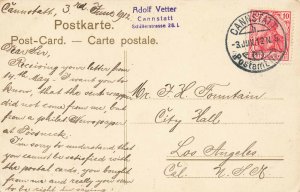 Cannstatt, 3rd June 1912.
Adolf Vetter
Cannstatt
Schillerstrasse 26 I.
Postkarte.
Post-Card. — Carte postale.
CANNSTATT
-3.JUN.12
Postamt
10
Dear Sir,
Receiving your letter from
14th May. I want you to
know, that the send
did not come from me, but
from a philat. Newspaper
at Pössneck.
I'm sorry to understand that
you cannot be satisfied with
the postal cards, you bought
from me and rest very really
to be right
Mr. F. H. Fountain
City Hall
Los Angeles
Cal. U.S.A.